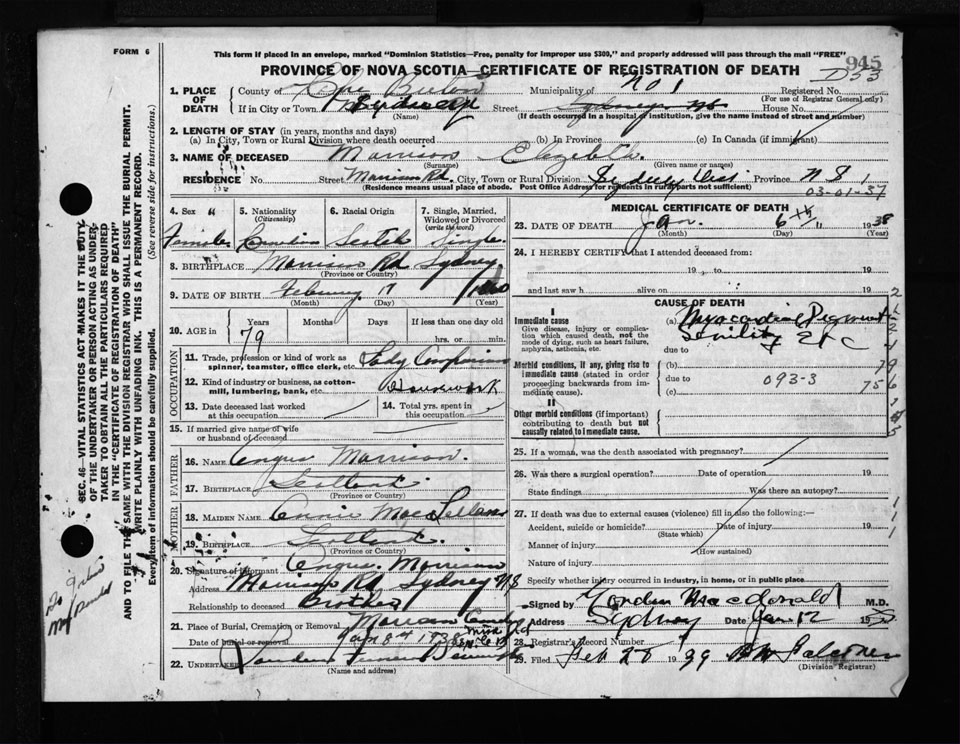 FORM 6
This form if placed in an envelope, marked "Dominion Statistics—Free, penalty for improper use $300," and properly addressed will pass through the mail "FREE"
945
PROVINCE OF NOVA SCOTIA—CERTIFICATE OF REGISTRATION OF DEATH
D53
1. PLACE OF DEATH County of Cape Breton Municipality of No 1 Registered No.
(For use of Registrar General only)
If in City or Town Sydney Street House No.
(Name) (If death occurred in a hospital or institution, give the name instead of street and number)
2. LENGTH OF STAY (in years, months and days)
(a) In City, Town or Rural Division where death occurred (b) In Province (c) In Canada (if immigrant)
3. NAME OF DECEASED Morrison Elizabeth
(Surname) (Given name or names)
RESIDENCE No. Street Morrison Rd. City, Town or Rural Division Sydney Province N S
(Residence means usual place of abode. Post Office Address for residents in rural parts not sufficient)
03-01-37
4. Sex 5. Nationality (Citizenship) 6. Racial Origin 7. Single, Married, Widowed or Divorced (write the word)
Female Canadian Scotch Single
8. BIRTHPLACE Morrison Rd Sydney
(Province or Country)
9. DATE OF BIRTH February 17
(Month) (Day) (Year)
10. AGE in Years Months Days If less than one day old
79 hrs. or min.
OCCUPATION
11. Trade, profession or kind of work as spinner, teamster, office clerk, etc. Lady Companion
12. Kind of industry or business, as cotton-mill, lumbering, bank, etc. Housework
13. Date deceased last worked at this occupation 14. Total yrs. spent in this occupation
15. If married give name of wife or husband of deceased
FATHER
16. NAME Angus Morrison.
17. BIRTHPLACE Scotland
(Province or Country)
MOTHER
18. MAIDEN NAME Annie MacLellan
19. BIRTHPLACE Scotland.
(Province or Country)
20. Signature of informant Angus Morrison
Address Morrison Rd Sydney N S
Relationship to deceased Brother
21. Place of Burial, Cremation or Removal
Date of burial or removal Jan 8th 1938
22. UNDERTAKER
(Name and address)
MEDICAL CERTIFICATE OF DEATH
23. DATE OF DEATH Jan. 6th 1938
(Month) (Day) (Year)
24. I HEREBY CERTIFY that I attended deceased from:
19 , to 19
and last saw h alive on 19
CAUSE OF DEATH
I
Immediate cause
Give disease, injury or complication which caused death, not the mode of dying, such as heart failure, asphyxia, asthenia, etc.
(a) Myocardial
Senility Etc
due to
Morbid conditions, if any, giving rise to immediate cause (stated in order proceeding backwards from immediate cause).
(b)
due to 093-3
(c)
II
Other morbid conditions (if important) contributing to death but not causally related to immediate cause.
25. If a woman, was the death associated with pregnancy?
26. Was there a surgical operation? Date of operation 19
State findings Was there an autopsy?
27. If death was due to external causes (violence) fill in also the following:—
Accident, suicide or homicide? Date of injury 19
(State which)
Manner of injury
(How sustained)
Nature of injury
Specify whether injury occurred in industry, in home, or in public place
Signed by Gordon Macdonald M.D.
Address Sydney Date Jan 12 19
28. Registrar's Record Number
29. Filed Feb 28 1939
(Division Registrar)
SEC. 46—VITAL STATISTICS ACT MAKES IT THE DUTY
OF THE UNDERTAKER OR PERSON ACTING AS UNDERTAKER TO OBTAIN ALL THE PARTICULARS REQUIRED
IN THE "CERTIFICATE OF REGISTRATION OF DEATH"
AND TO FILE THE SAME WITH THE DIVISION REGISTRAR WHO SHALL ISSUE THE BURIAL PERMIT.
WRITE PLAINLY WITH UNFADING INK. THIS IS A PERMANENT RECORD.
Every item of information should be carefully supplied. (See reverse side for instructions.)